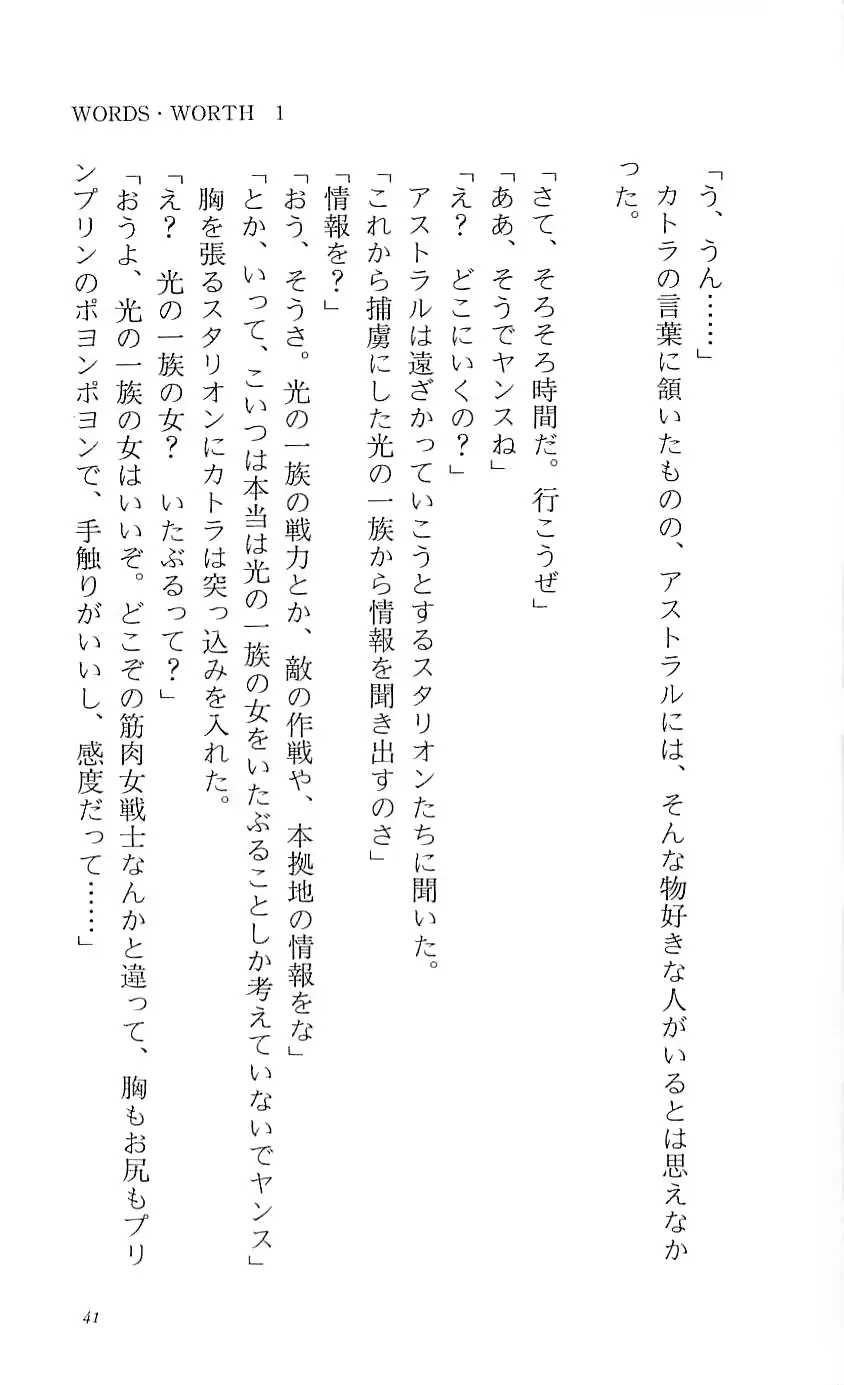 WORDS・WORTH 1
「う、うん……」
カトラの言葉に頷いたものの、アストラルには、そんな物好きな人がいるとは思えなか
った。
「さて、そろそろ時間だ。行こうぜ」
「ああ、そうでヤンスね」
「え？　どこにいくの？」
アストラルは遠ざかっていこうとするスタリオンたちに聞いた。
「これから捕虜にした光の一族から情報を聞き出すのさ」
「情報を？」
「おう、そうさ。光の一族の戦力とか、敵の作戦や、本拠地の情報をな」
「とか、いって、こいつは本当は光の一族の女をいたぶることしか考えていないでヤンス」
胸を張るスタリオンにカトラは突っ込みを入れた。
「え？　光の一族の女？　いたぶるって？」
「おうよ、光の一族の女はいいぞ。どこぞの筋肉女戦士なんかと違って、胸もお尻もプリ
ンプリンのポヨンポヨンで、手触りがいいし、感度だって……」
41